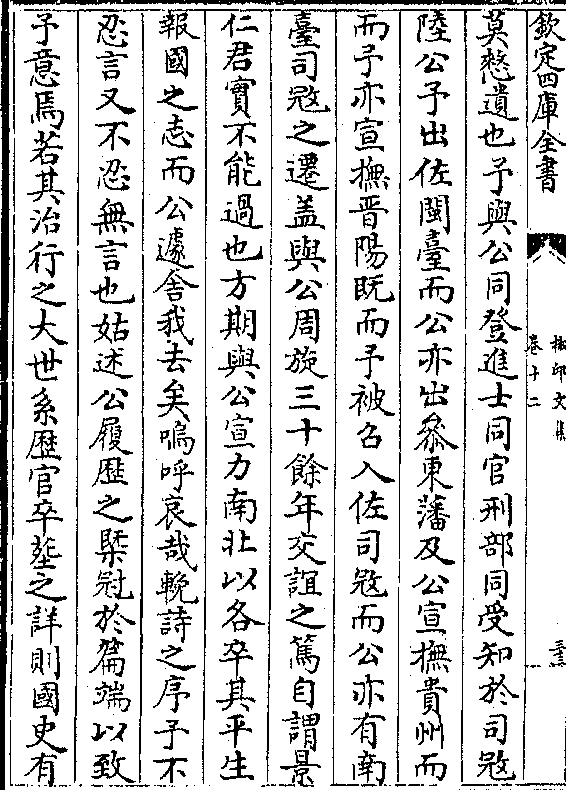 欽定四庫全書
椒邱文集
卷十二
三十三
莫憗遺也予與公同登進士同官刑部同受知於司冦
陸公予出佐閩臺而公亦出叅東藩及公宣撫貴州而
而予亦宣撫晋陽既而予被召入佐司冦而公亦有南
臺司冦之遷盖與公周旋三十餘年交誼之篤自謂景
仁君實不能過也方期與公宣力南北以各卒其平生
報國之志而公遽舍我去矣嗚呼哀哉輓詩之序予不
忍言又不忍無言也姑述公履歴之槩冠於篇端以致
予意焉若其治行之大世系歴官卒塟之詳則國史有